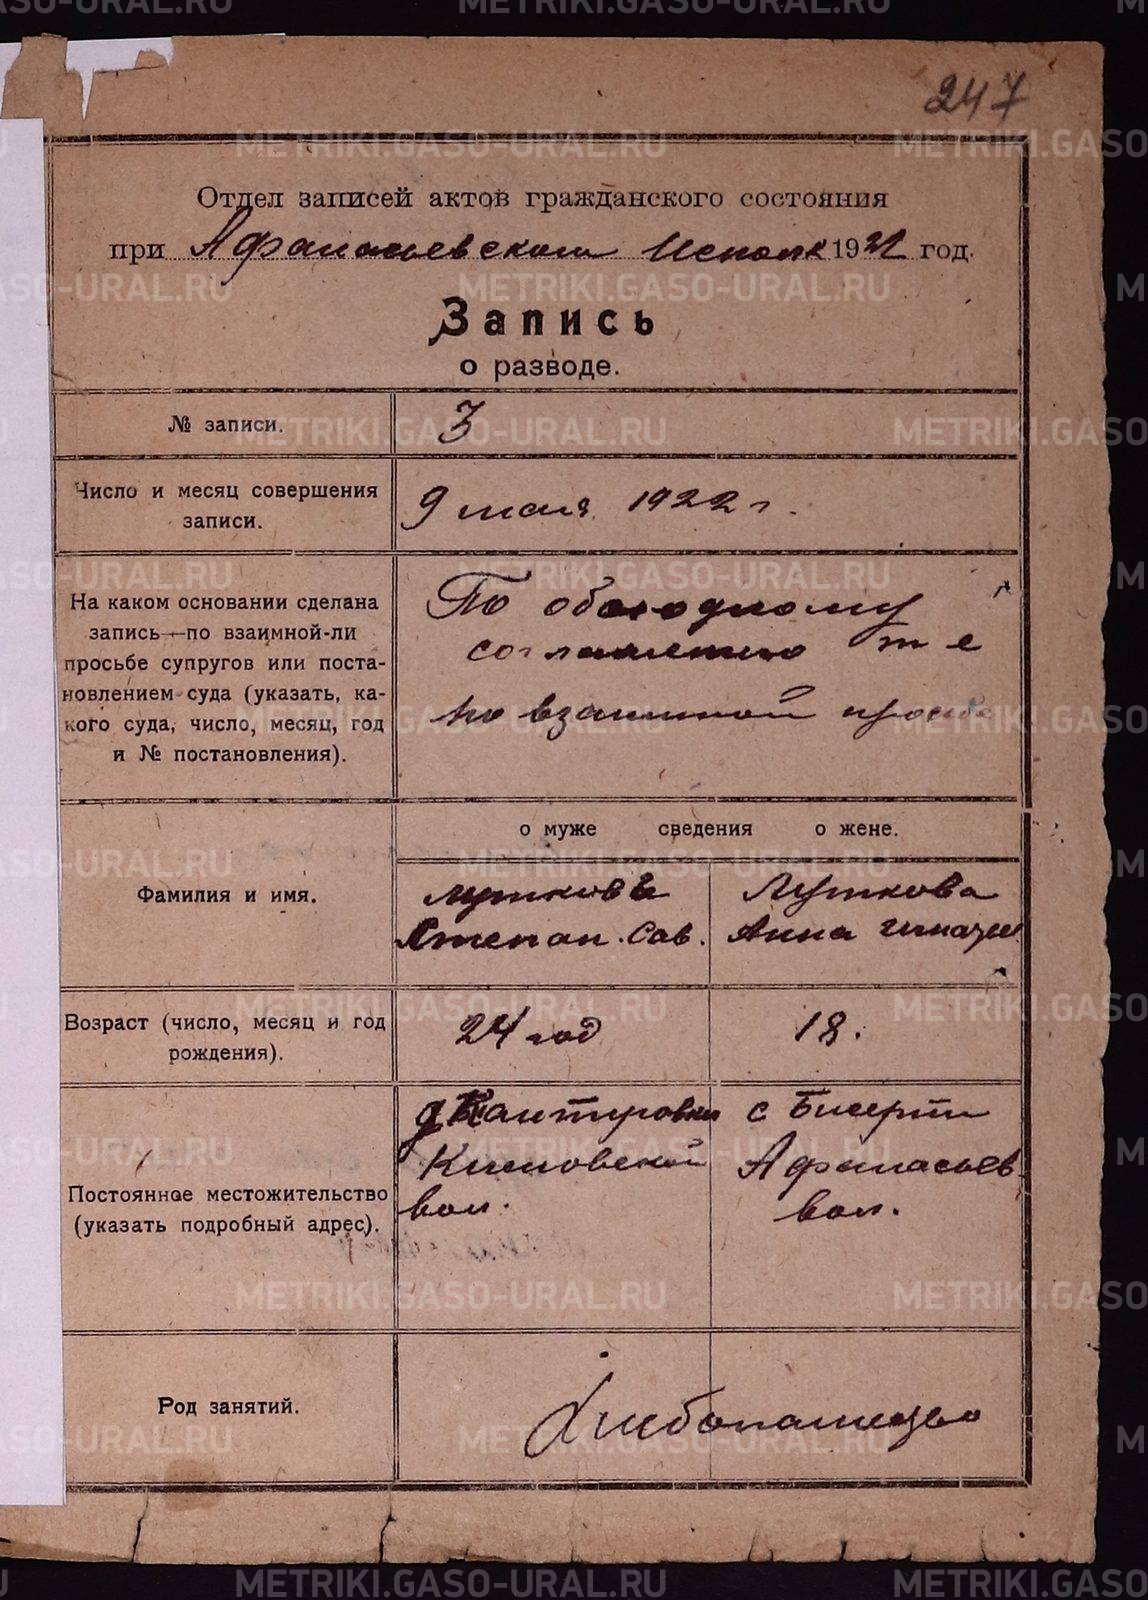 247
Отдел записей актов гражданского состояния
при Афанасьевском Исполк 1922 год.
Запись
о разводе.
№ записи.
3
Число и месяц совершения
записи.
9 мая 1922 г.
На каком основании сделана
запись—по взаимной-ли
просьбе супругов или поста-
новлением суда (указать, ка-
кого суда, число, месяц, год
и № постановления).
По обоюдному
соглашению т е
по взаимной просьбе
о муже сведения о жене.
Фамилия и имя.
Степан. Сав.
Анна
Возраст (число, месяц и год
рождения).
24 год
18.
Постоянное местожительство
(указать подробный адрес).
д
вол.
с Бисерти
Афанасьев
вол.
Род занятий.
Хлебопашество
METRIKI.GASO-URAL.RU